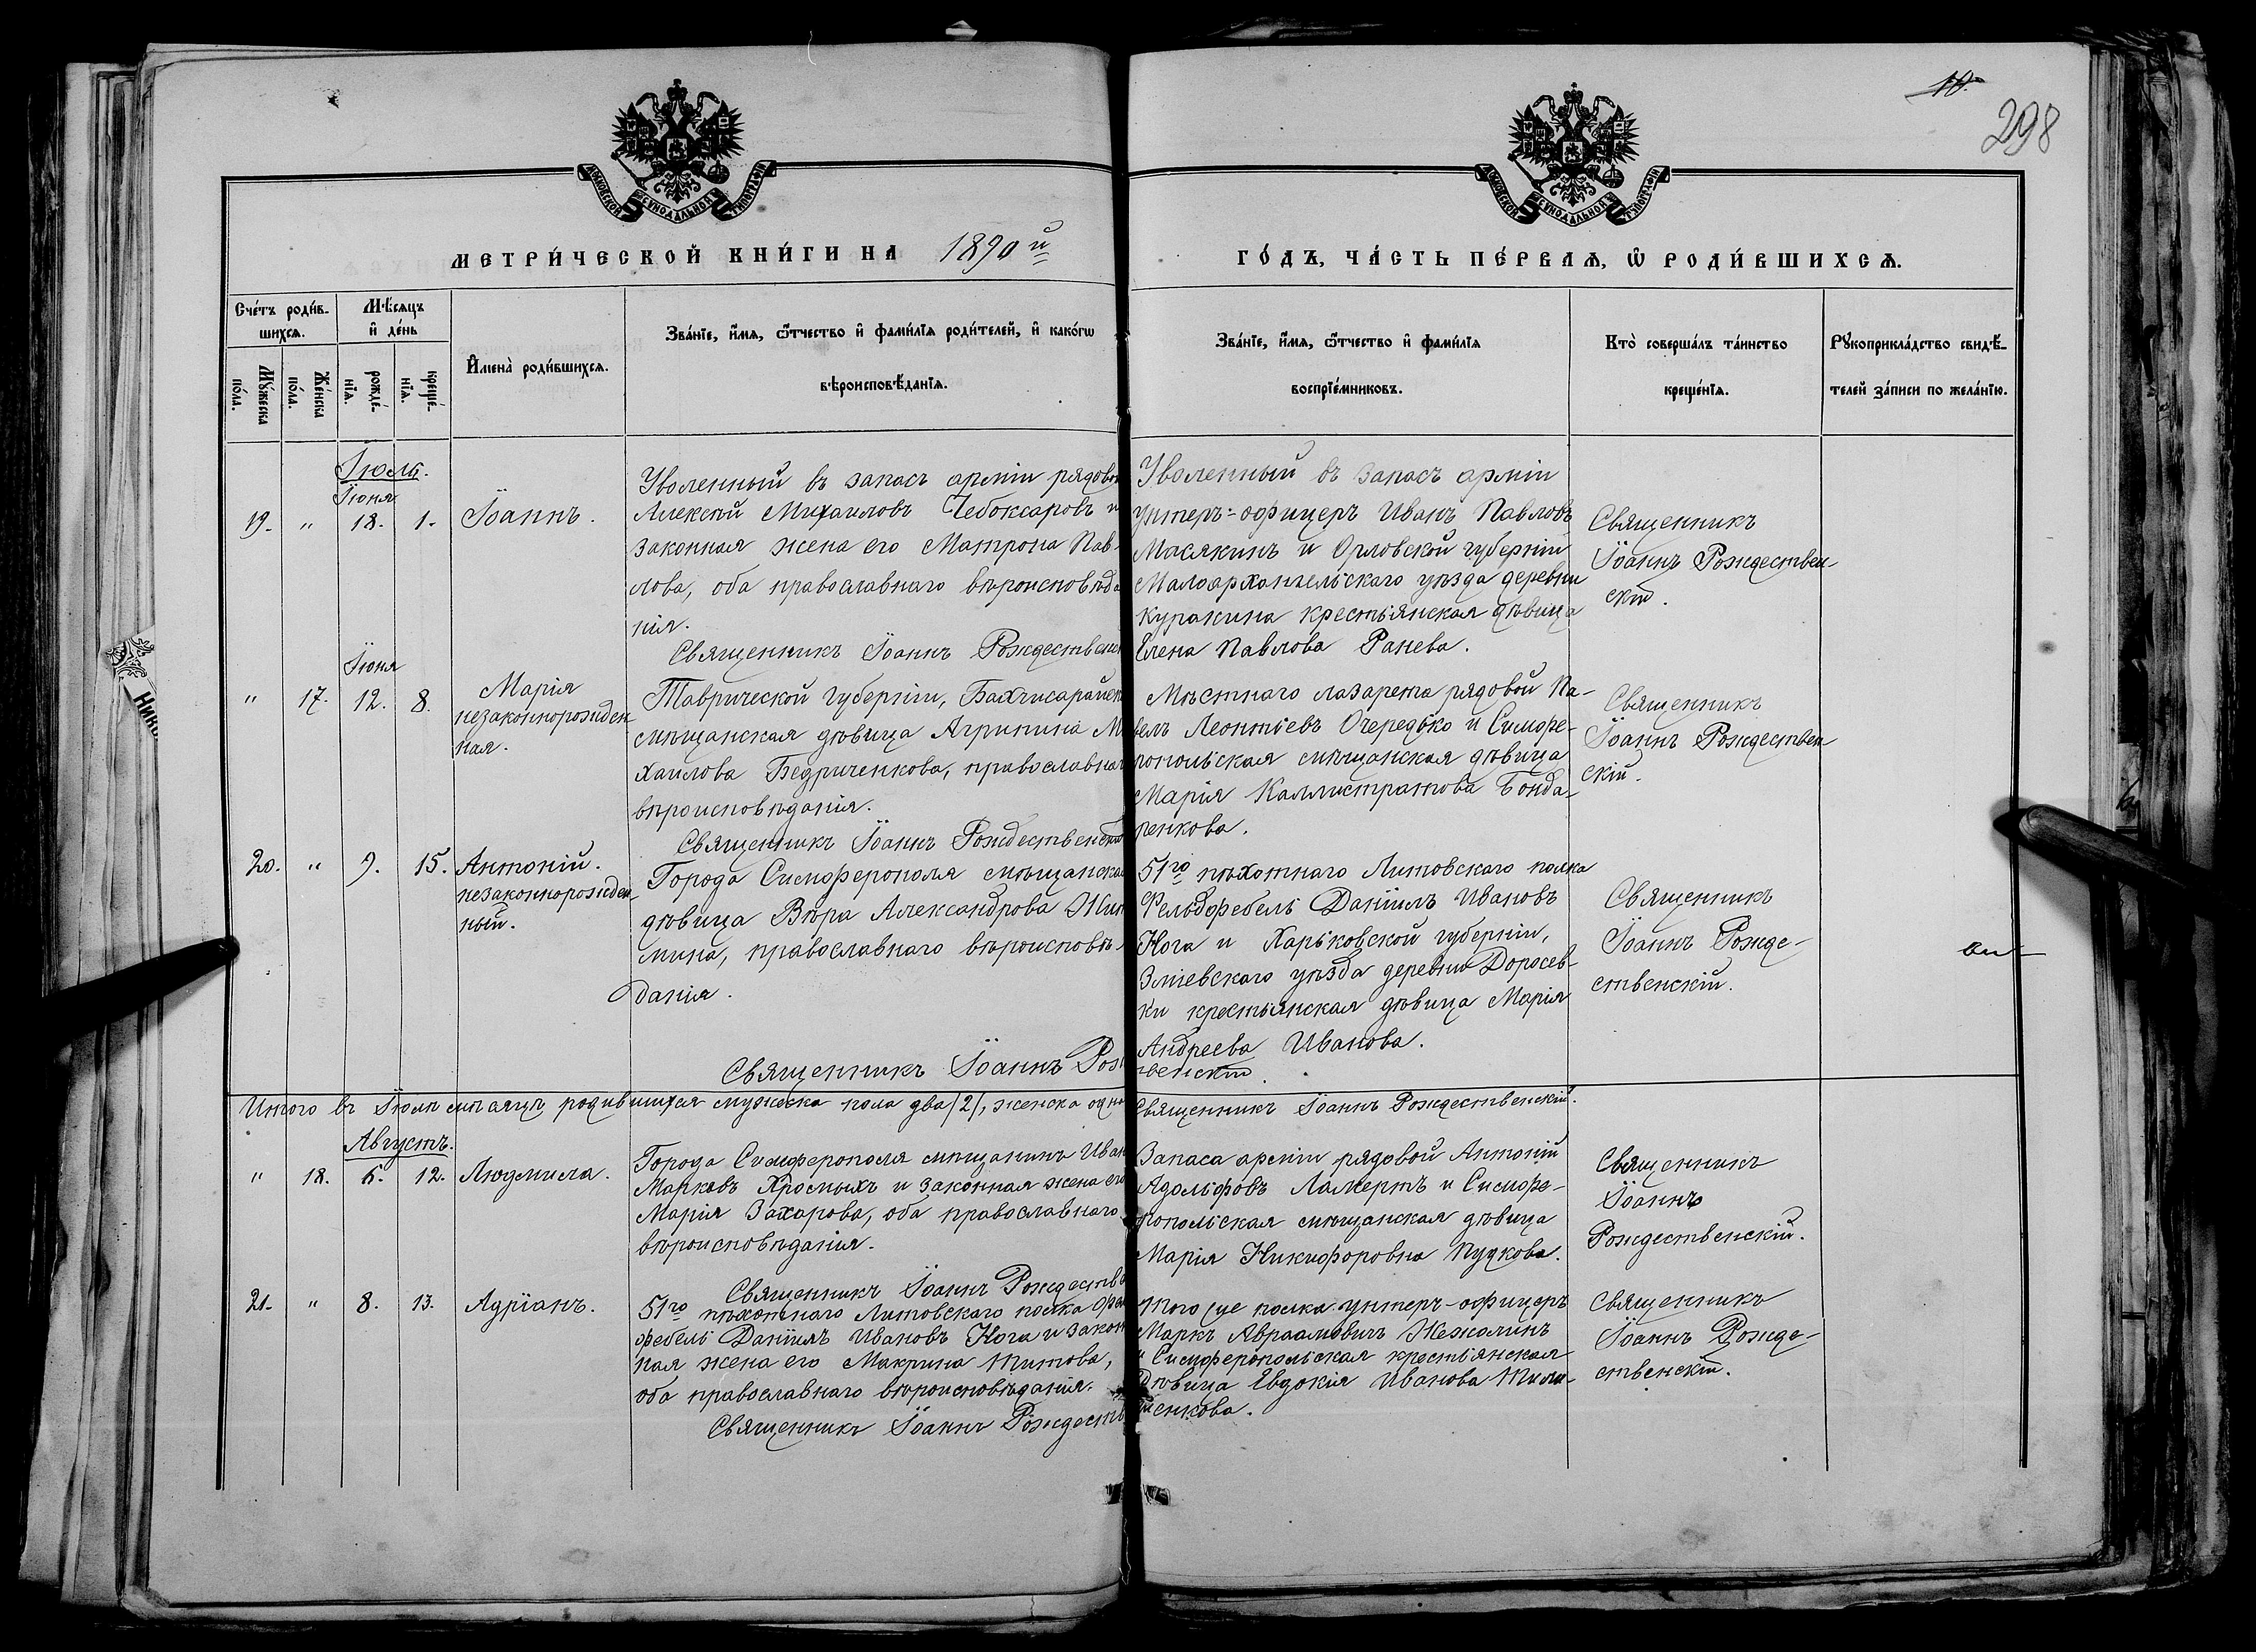 10.
298
МОСКОВСКОЙ СѴНОДАЛЬНОЙ ТИПОГРАФІИ
МОСКОВСКОЙ СѴНОДАЛЬНОЙ ТИПОГРАФІИ
МЕТРИ́ЧЕСКОЙ КНИ́ГИ НА 1890й
ГО́ДЪ, ЧА́СТЬ ПЕ́РВАѦ, Ѡ РОДИ́ВШИХСѦ.
Сче́тъ роди́в-
шихсѧ.
Мѹ́жеска по́ла.
Же́нска по́ла.
Мѣ́сѧцъ
и҆ де́нь
рожде́-
нїѧ.
креще́-
нїѧ.
И҆мена̀ роди́вшихсѧ.
Зва́нїе, и҆́мѧ, ѻ҆́тчество и҆ фами́лїѧ роди́телей, и҆ како́гѡ
вѣроисповѣ́данїѧ.
Зва́нїе, и҆́мѧ, ѻ҆́тчество и҆ фами́лїѧ
воспрїе́мниковъ.
Кто̀ соверша́лъ та́инство
креще́нїѧ.
Рѹкоприкла́дство свидѣ́-
телей за́писи по жела́нїю.
Іюль.
Іюня
19. " 18. 1. Іоаннъ.
Уволенный въ запасъ арміи рядовой
Алексѣй Михаиловъ Чебоксаровъ и
законная жена его Матрона Пав-
лова, оба православнаго вѣроисповѣда
нія.
Священникъ Іоаннъ Рождественск
Уволенный въ запасъ арміи
унтеръ-офицеръ Иванъ Павловъ
Масякинъ и Орловской губерніи
Малоархангельскаго уѣзда деревни
Куракина крестьянская дѣвица
Елена Павлова Ранева.
Священникъ
Іоаннъ Рождествен-
скій.
Іюня
" 17. 12. 8. Марія
незаконнорожден
ная.
Таврической губерніи, Бахчисарайск
мѣщанская дѣвица Агрипина Ми
хаилова Бедриченкова, православнаг
вѣроисповѣданія.
Священникъ Іоаннъ Рождественскій
Мѣстнаго лазарета рядовой Па-
велъ Леонтьевъ Очередько и Симфе-
ропольская мѣщанская дѣвица
Марія Каллистратова Бонда-
ренкова.
Священникъ
Іоаннъ Рождествен
скій.
20. " 9. 15. Антоній.
незаконнорожден
ный.
Города Симферополя мѣщанская
дѣвица Вѣра Александрова
мина, православнаго вѣроисповѣ-
данія.
Священникъ Іоаннъ Рож
51го пѣхотнаго Литовскаго полка
Фельдфебель Даніилъ Ивановъ
Нога и Харьковской губерніи,
Зміевскаго уѣзда деревни Доросев-
ки крестьянская дѣвица Марія
Андреева Иванова.
твенскій.
Священникъ
Іоаннъ Рожде-
ственскій.
Итого въ Іюлѣ мѣсяцѣ родившихся мужеска пола два /2/, женска одна
Священникъ Іоаннъ Рождественскій.
Августъ.
" 18. 6. 12. Людмила.
Города Симферополя мѣщанинъ Иван
Марковъ Хромыхъ и законная жена его
Марія Захарова, оба православнаго
вѣроисповѣданія.
Священникъ Іоаннъ Рождеств
Запаса арміи рядовой Антоній
Адольфовъ Ламертъ и Симфе-
ропольская мѣщанская дѣвица
Марія Никифоровна Пудкова.
Священникъ
Іоаннъ
Рождественскій.
21. " 8. 13. Адріанъ.
51го пѣхотнаго Литовскаго полка фель
фебель Даніилъ Ивановъ Нога и закон
ная жена его Макрина Титова,
оба православнаго вѣроисповѣданія.
Священникъ Іоаннъ Рождеств
Того же полка унтеръ-офицеръ
Маркъ Авраамовичъ Жежолинъ
и Симферопольская крестьянская
дѣвица Евдокія Иванова Тим-
ченкова.
Священникъ
Іоаннъ Рожде-
ственскій.